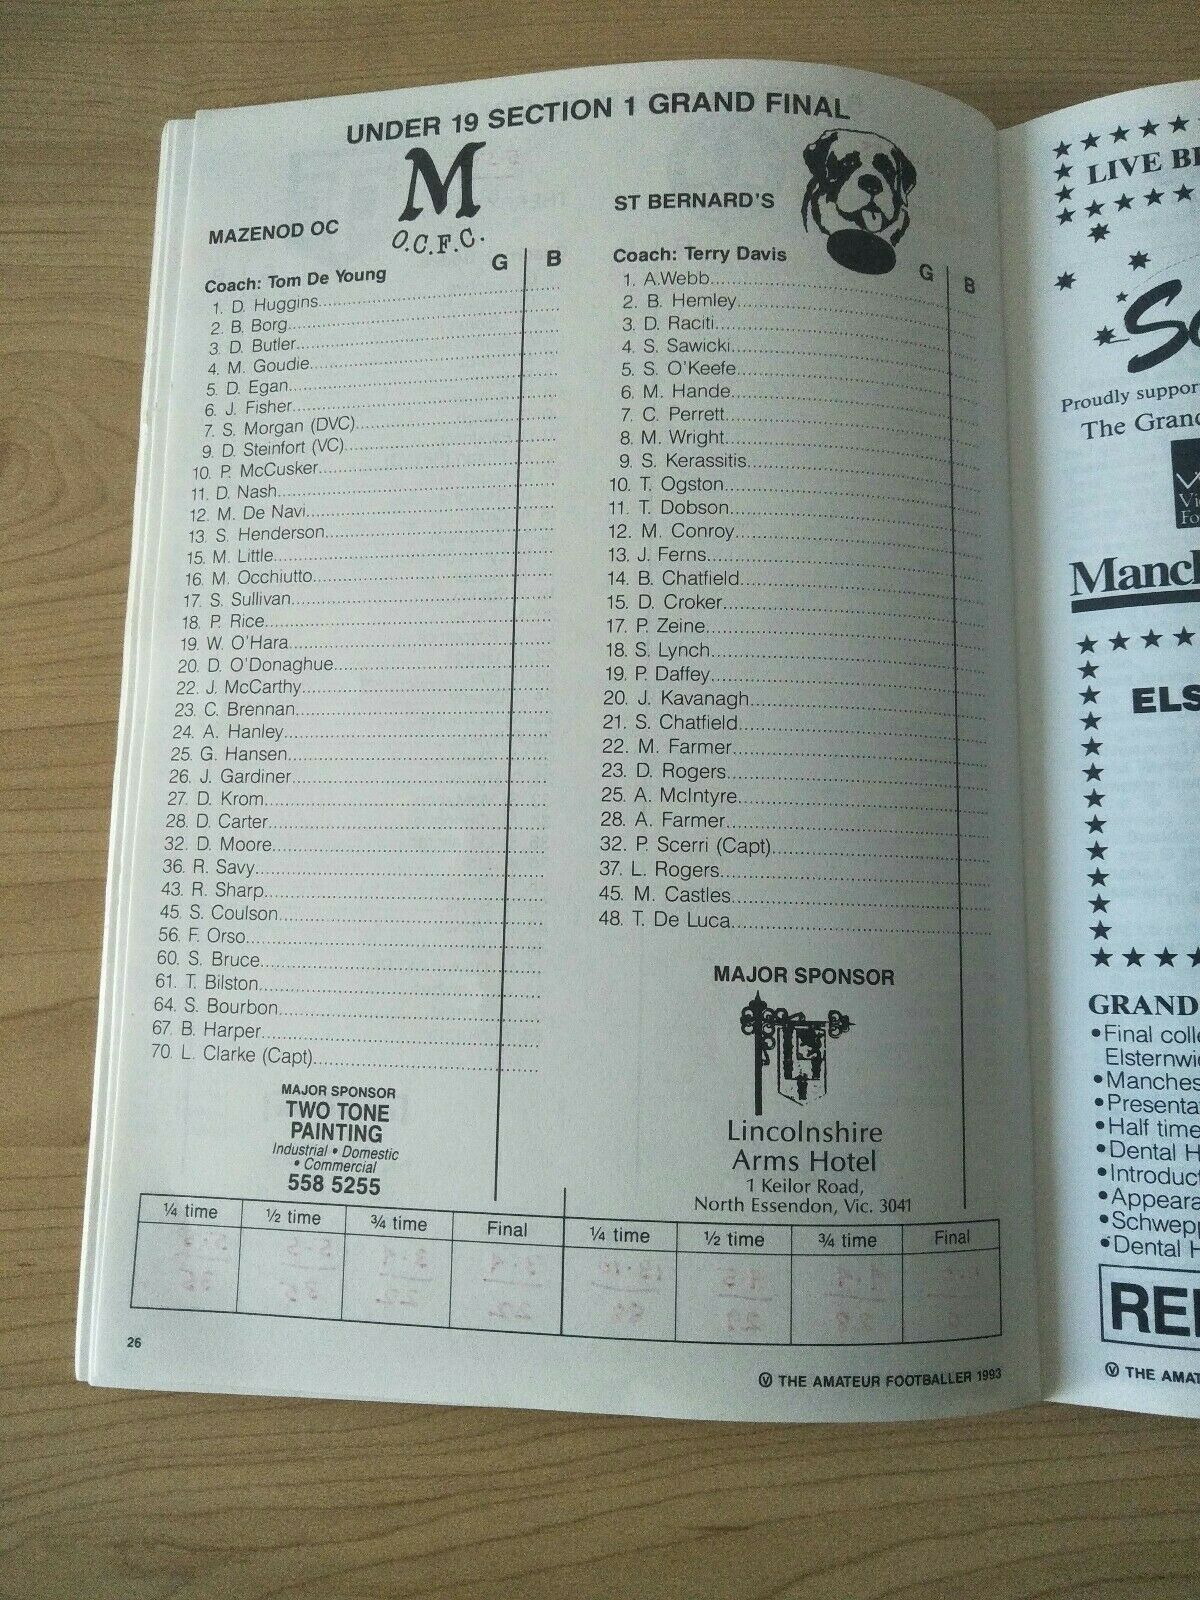 UNDER 19 SECTION 1 GRAND FINAL
M
O.C.F.C.
MAZENOD OC
Coach: Tom De Young
G B
1. D. Huggins
2. B. Borg
3. D. Butler
4. M. Goudie
5. D. Egan
6. J. Fisher
7. S. Morgan (DVC)
9. D. Steinfort (VC)
10. P. McCusker
11. D. Nash
12. M. De Navi
13. S. Henderson
15. M. Little
16. M. Occhiutto
17. S. Sullivan
18. P. Rice
19. W. O'Hara
20. D. O'Donaghue
22. J. McCarthy
23. C. Brennan
24. A. Hanley
25. G. Hansen
26. J. Gardiner
27. D. Krom
28. D. Carter
32. D. Moore
36. R. Savy
43. R. Sharp
45. S. Coulson
56. F. Orso
60. S. Bruce
61. T. Bilston
64. S. Bourbon
67. B. Harper
70. L. Clarke (Capt)
MAJOR SPONSOR
TWO TONE
PAINTING
Industrial • Domestic
• Commercial
558 5255
ST BERNARD'S
Coach: Terry Davis
G B
1. A.Webb
2. B. Hemley
3. D. Raciti
4. S. Sawicki
5. S. O'Keefe
6. M. Hande
7. C. Perrett
8. M. Wright
9. S. Kerassitis
10. T. Ogston
11. T. Dobson
12. M. Conroy
13. J. Ferns
14. B. Chatfield
15. D. Croker
17. P. Zeine
18. S. Lynch
19. P. Daffey
20. J. Kavanagh
21. S. Chatfield
22. M. Farmer
23. D. Rogers
25. A. McIntyre
28. A. Farmer
32. P. Scerri (Capt)
37. L. Rogers
45. M. Castles
48. T. De Luca
MAJOR SPONSOR
Lincolnshire
Arms Hotel
1 Keilor Road,
North Essendon, Vic. 3041
¼ time ½ time ¾ time Final ¼ time ½ time ¾ time Final
26
Ⓥ THE AMATEUR FOOTBALLER 1993
LIVE
Proudly
The
ELS
GRAND
•Final
•Half time
•Dental
Ⓥ THE